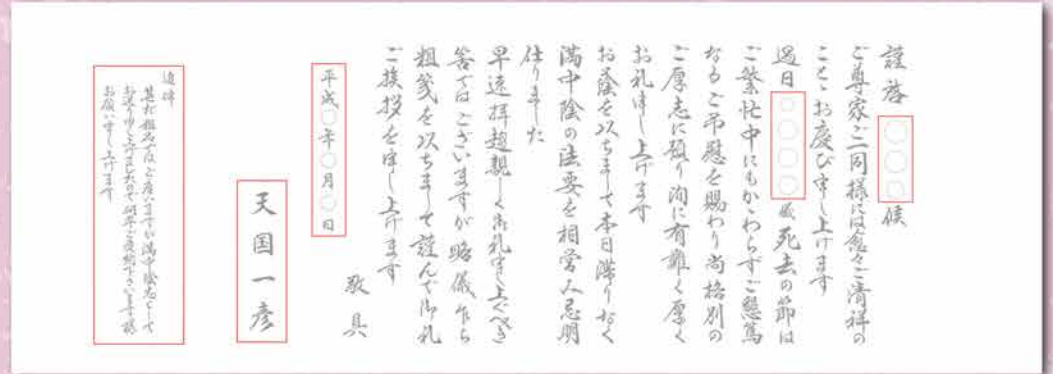 謹啓 〇〇〇候
ご尊家ご一同様には愈々ご清祥の
こととお慶び申し上げます
過日〇〇〇〇儀 死去の節は
ご繁忙中にもかゝわらずご懇篤
なるご弔慰を賜わり尚格別の
ご厚志に預り洵に有難く厚く
お礼申し上げます
お蔭を以ちまして本日滞りなく
満中陰の法要を相営み忌明
仕りました
早速拝趨親しく御礼申し上ぐべき
筈ではございますが略儀乍ら
粗箋を以ちまして謹んで御礼
ご挨拶を申し上げます
敬具
平成〇年〇月〇日
天国一彦
追伸
甚だ粗志ではご座いますが満中陰志として
お送り申し上げましたので何卒ご受納下さいます様
お願い申し上げます